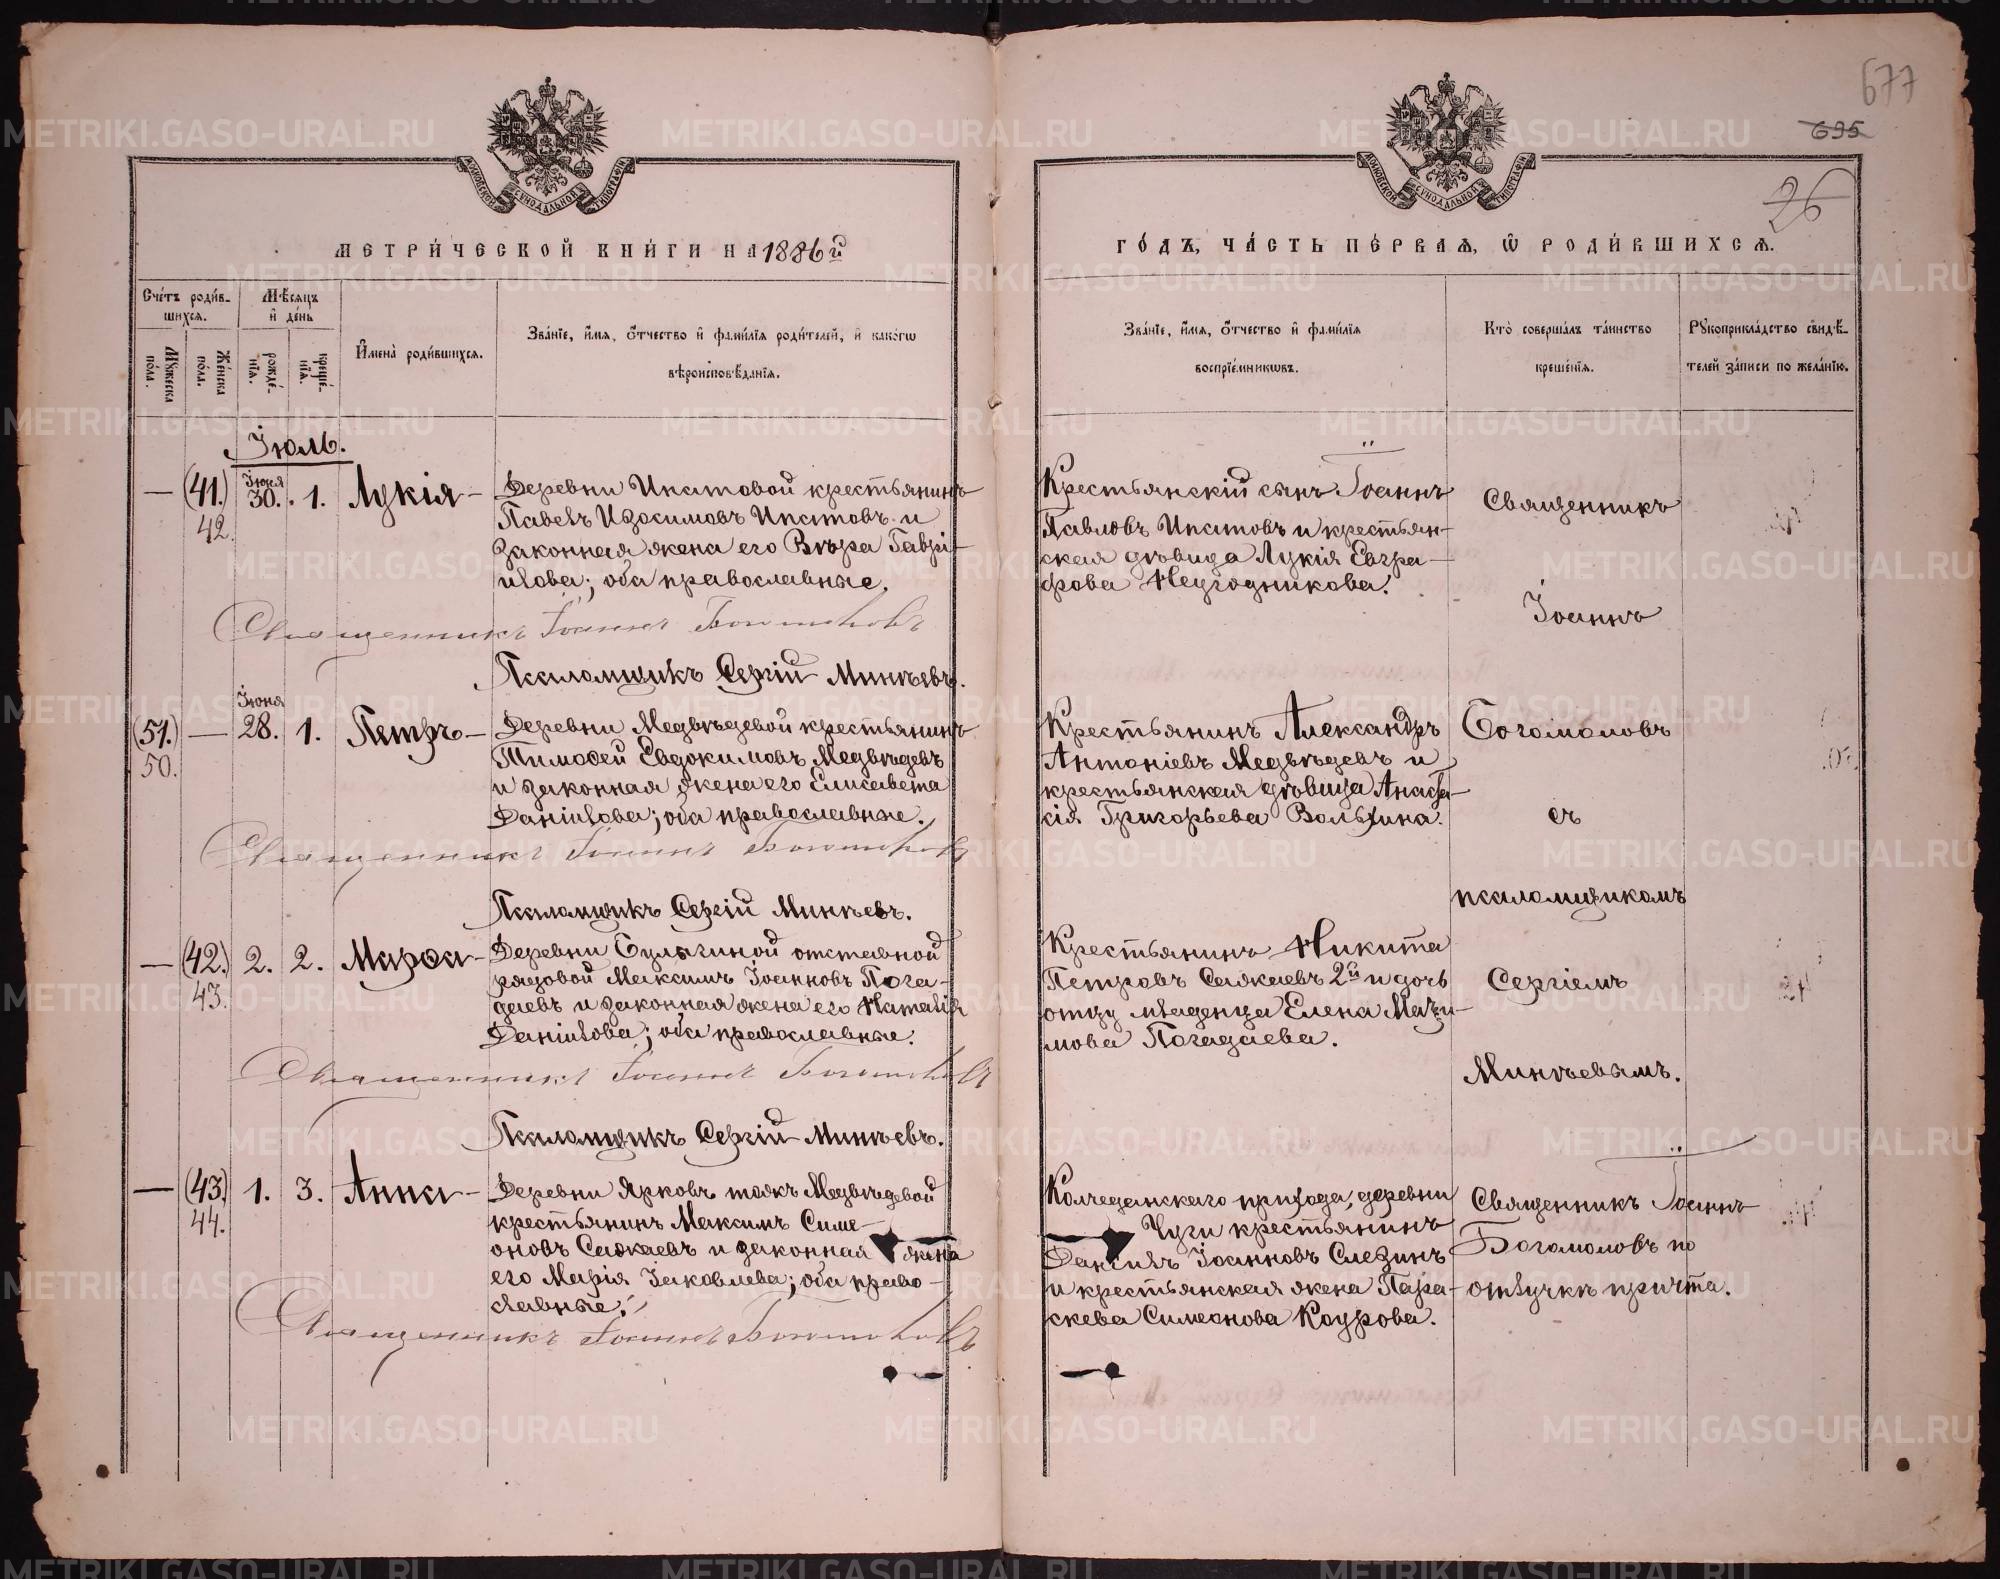 677
695
26
МОСКОВСКОЙ СѴНОДАЛЬНОЙ ТИПОГРАФІИ
МОСКОВСКОЙ СѴНОДАЛЬНОЙ ТИПОГРАФІИ
МЕТРИ́ЧЕСКОЙ КНИ́ГИ НА 1886й
ГО́ДЪ, ЧА́СТЬ ПЕ́РВАЯ, Ѿ РОДИ́ВШИХСЯ.
Сче́тъ роди́в-
шихся.
Мѣ́сяцъ
и де́нь
Мꙋ́жеска
по́ла.
Же́нска
по́ла.
рожде́-
нія.
креще́-
нія.
И҆мена̀ роди́вшихся.
Зва́нїе, и҆́мя, ѻ҆́тчество и҆ фами́лїя роди́телей, и҆ како́гѡ
вѣроисповѣ́данїя.
Зва́нїе, и҆́мя, ѻ҆́тчество и҆ фами́лїя
воспрїе́мникѡвъ.
Кто̀ соверша́лъ та́инство
креще́нїя.
Рꙋкоприкла́дство свидѣ́-
телей за́писи по жела́нїю.
Іюль.
— (41.) Іюня 30. 1. Лукія —
42.
Деревни Ипатовой крестьянинъ
Павелъ Изосимовъ Ипатовъ и
законная жена его Вѣра Гаврі-
илова; оба православные.
Крестьянскій сынъ Іоаннъ
Павловъ Ипатовъ и крестьян-
ская дѣвица Лукія Евгра-
фова Негодникова.
Священникъ Іоаннъ Богомоловъ
Псаломщикъ Сергій Минѣевъ.
Священникъ
Іоаннъ
Богомоловъ
съ
псаломщикомъ
Сергіемъ
Минѣевымъ.
(51.) — Іюня 28. 1. Петръ —
50.
Деревни Медвѣдевой крестьянинъ
Тимофей Евдокимовъ Медвѣдевъ
и законная жена его Елисавета
Даніилова; оба православные.
Крестьянинъ Александръ
Антоніевъ Медвѣдевъ и
крестьянская дѣвица Анаста-
сія Григорьева Волыхина.
Священникъ Іоаннъ Богомоловъ
Псаломщикъ Сергій Минѣевъ.
— (42.) 2. 2. Марѳа —
43.
Деревни Булыгиной отставной
рядовой Максимъ Іоанновъ Пога-
даевъ и законная жена его Наталія
Даніилова; оба православные.
Крестьянинъ Никита
Петровъ Сажаевъ 2й и дочь
отцу младенца Елена Макси-
мова Погадаева.
Священникъ Іоаннъ Богомоловъ
Псаломщикъ Сергій Минѣевъ.
— (43.) 1. 3. Анна —
44.
Деревни Ярковъ тожъ Медвѣдевой
крестьянинъ Максимъ Симе-
оновъ Сажаевъ и законная жена
его Марія Іаковлева; оба право-
славные.
Колчеданскаго прихода, деревни
Чуги крестьянинъ
Даніилъ Іоанновъ Слезинъ
и крестьянская жена Пара-
скева Симеонова Коурова.
Священникъ Іоаннъ
Богомоловъ по
отлучкѣ причта.
Священникъ Іоаннъ Богомоловъ
METRIKI.GASO-URAL.RU